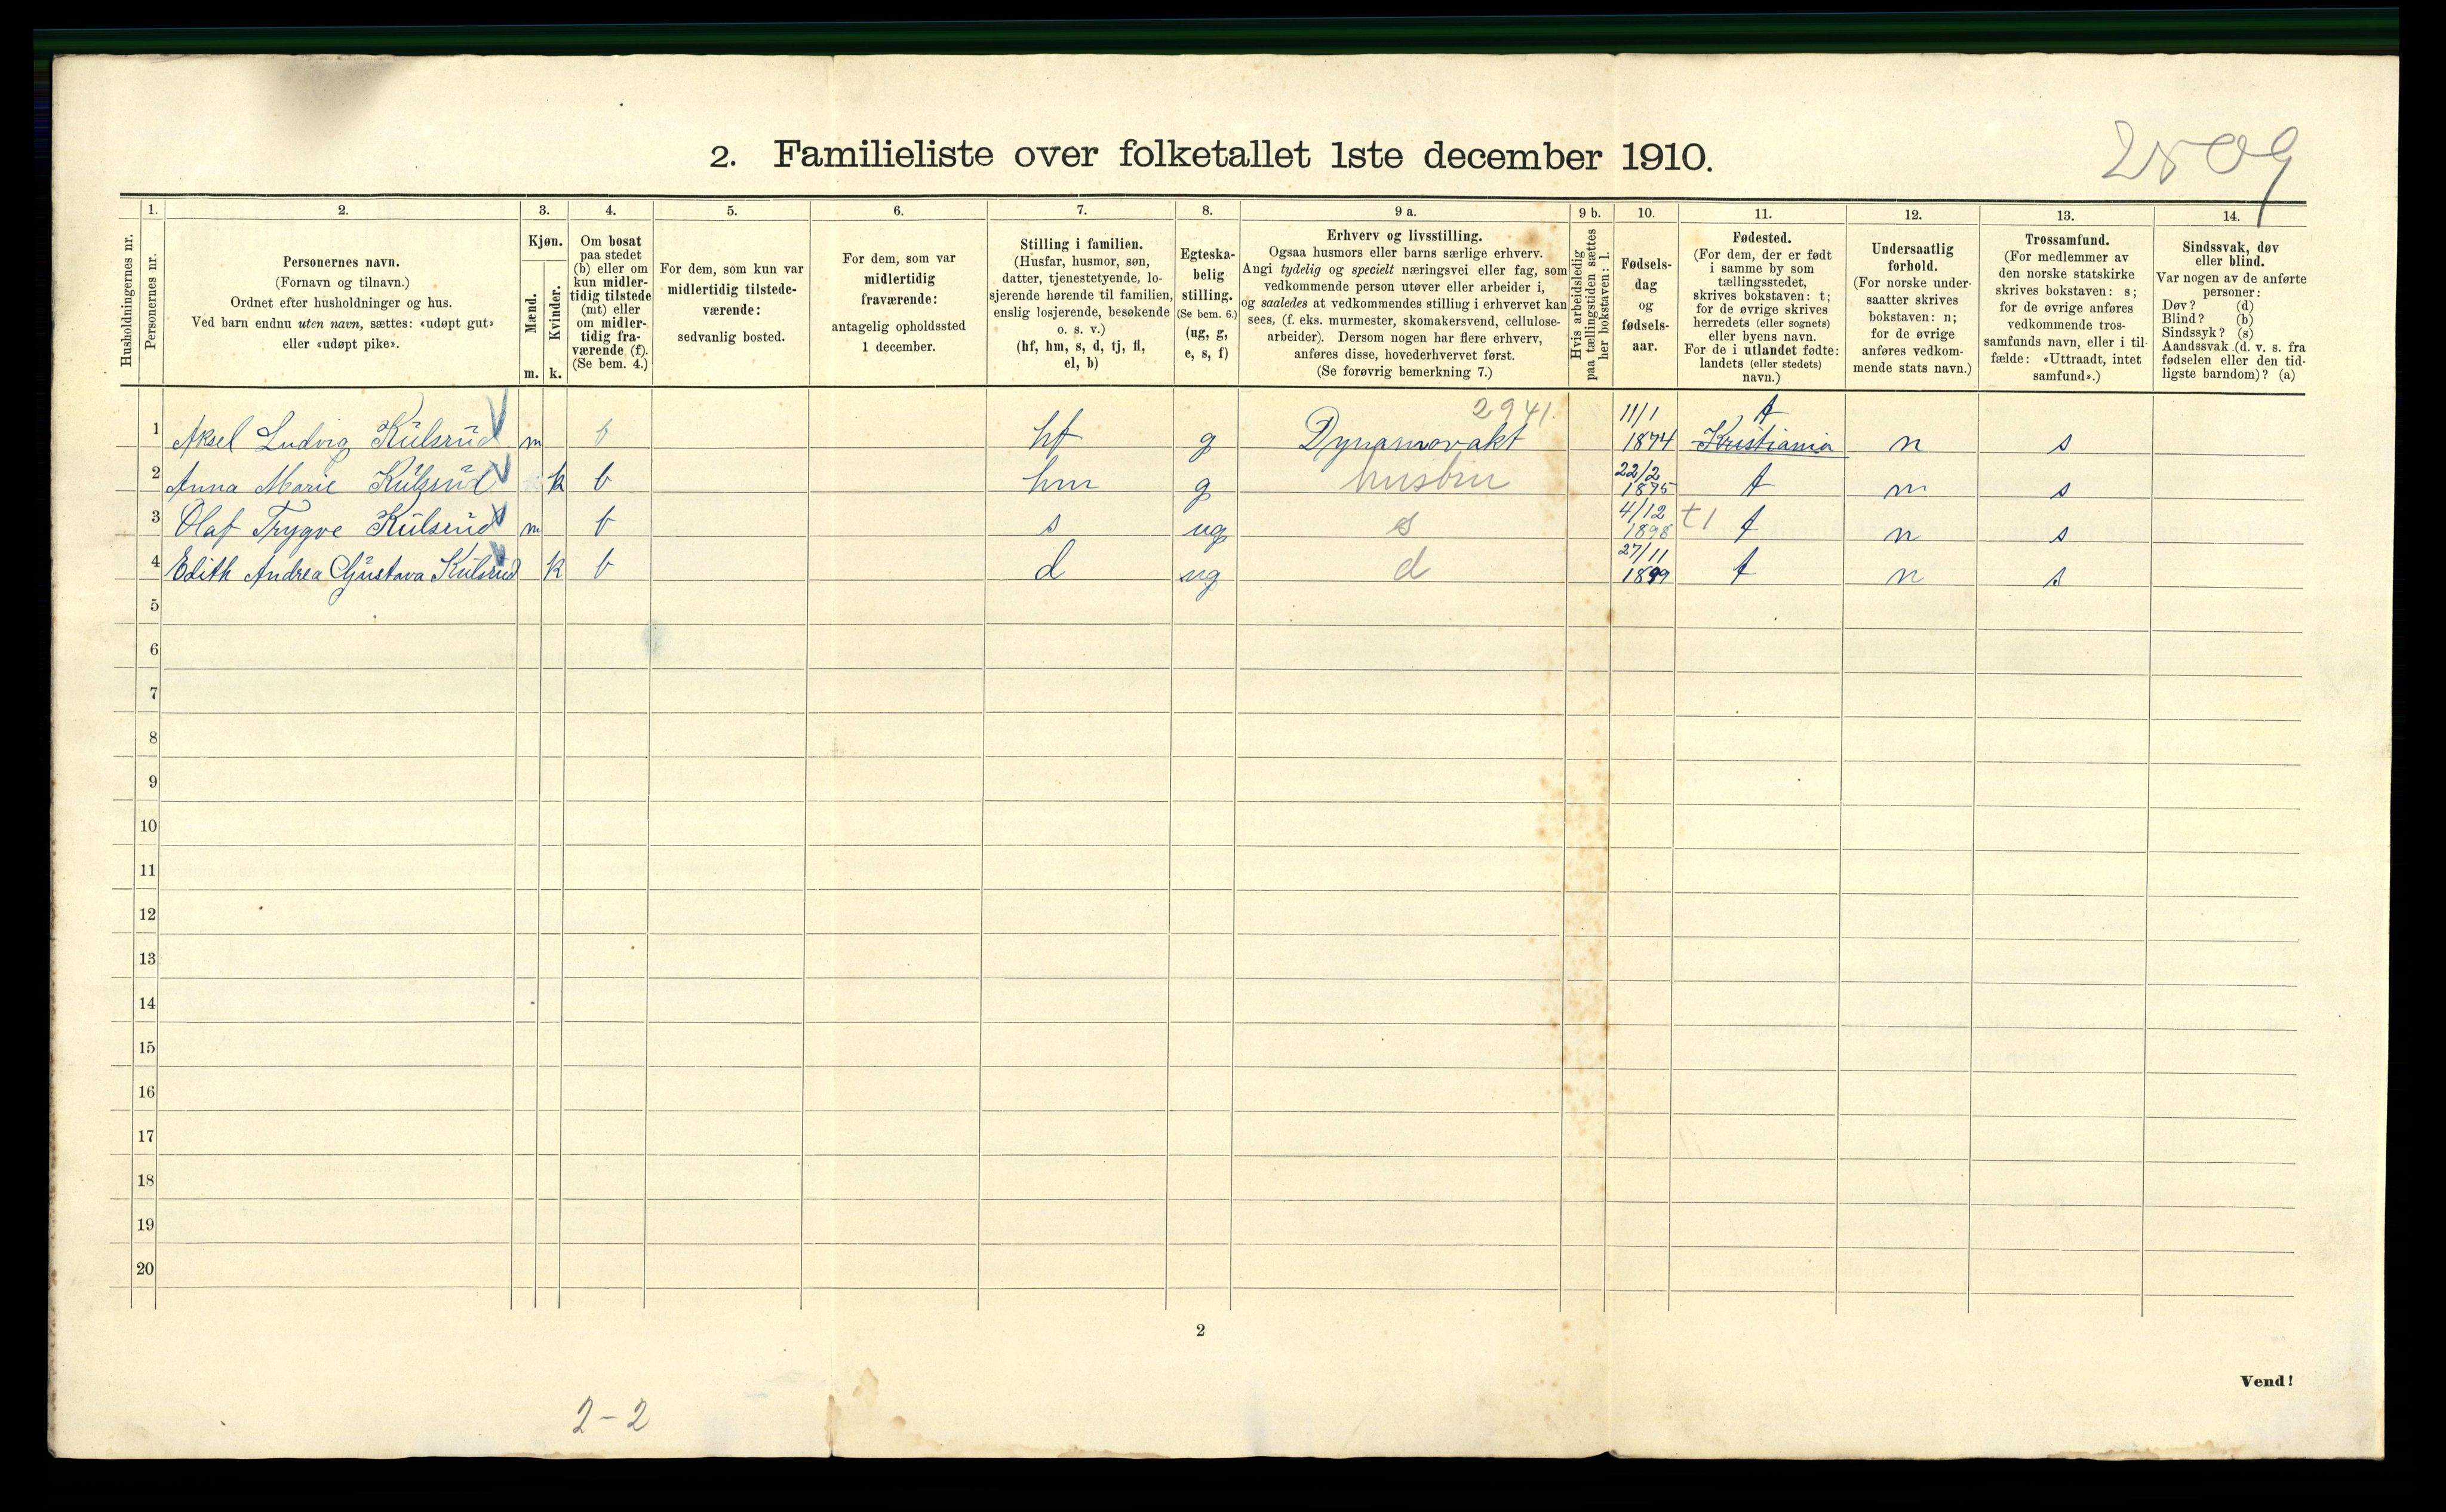 2. Familieliste over folketallet 1ste december 1910.
2509
Husholdningernes nr.
1.
Personernes nr.
2.
Personernes navn.
(Fornavn og tilnavn.)
Ordnet efter husholdninger og hus.
Ved barn endnu uten navn, sættes: «udøpt gut»
eller «udøpt pike».
3.
Kjøn.
Mænd.
m.
Kvinder.
k.
4.
Om bosat
paa stedet
(b) eller om
kun midler-
tidig tilstede
(mt) eller
om midler-
tidig fra-
værende (f).
(Se bem. 4.)
5.
For dem, som kun var
midlertidig tilstede-
værende:
sedvanlig bosted.
6.
For dem, som var
midlertidig
fraværende:
antagelig opholdssted
1 december.
7.
Stilling i familien.
(Husfar, husmor, søn,
datter, tjenestetyende, lo-
sjerende hørende til familien,
enslig losjerende, besøkende
o. s. v.)
(hf, hm, s, d, tj, fl,
el, b)
8.
Egteska-
belig
stilling.
(Se bem. 6.)
(ug, g,
e, s, f)
9 a.
Erhverv og livsstilling.
Ogsaa husmors eller barns særlige erhverv.
Angi tydelig og specielt næringsvei eller fag, som
vedkommende person utøver eller arbeider i,
og saaledes at vedkommendes stilling i erhvervet kan
sees, (f. eks. murmester, skomakersvend, cellulose-
arbeider). Dersom nogen har flere erhverv,
anføres disse, hovederhvervet først.
(Se forøvrig bemerkning 7.)
9 b.
Hvis arbeidsledig
paa tællingstiden sættes
her bokstaven: l.
10.
Fødsels-
dag
og
fødsels-
aar.
11.
Fødested.
(For dem, der er født
i samme by som
tællingsstedet,
skrives bokstaven: t;
for de øvrige skrives
herredets (eller sognets)
eller byens navn.
For de i utlandet fødte:
landets (eller stedets)
navn.)
12.
Undersaatlig
forhold.
(For norske under-
saatter skrives
bokstaven: n;
for de øvrige
anføres vedkom-
mende stats navn.)
13.
Trossamfund.
(For medlemmer av
den norske statskirke
skrives bokstaven: s;
for de øvrige anføres
vedkommende tros-
samfunds navn, eller i til-
fælde: «Uttraadt, intet
samfund».)
14.
Sindssvak, døv
eller blind.
Var nogen av de anførte
personer:
Døv? (d)
Blind? (b)
Sindssyk? (s)
Aandssvak (d. v. s. fra
fødselen eller den tid-
ligste barndom)? (a)
2941. 11/1 t
1 Aksel Ludvig Kulsrud m b hf g Dynamovakt 1874 Kristiania n s
22/2
2 Anna Marie Kulsrud k b hm g husbru 1875 t n s
4/12
3 Olaf Trygve Kulsrud m b s ug s 1898 t1 t n s
27/11
4 Edith Andrea Gustava Kulsrud k b d ug d 1899 t n s
5
6
7
8
9
10
11
12
13
14
15
16
17
18
19
20
2
Vend!
2-2